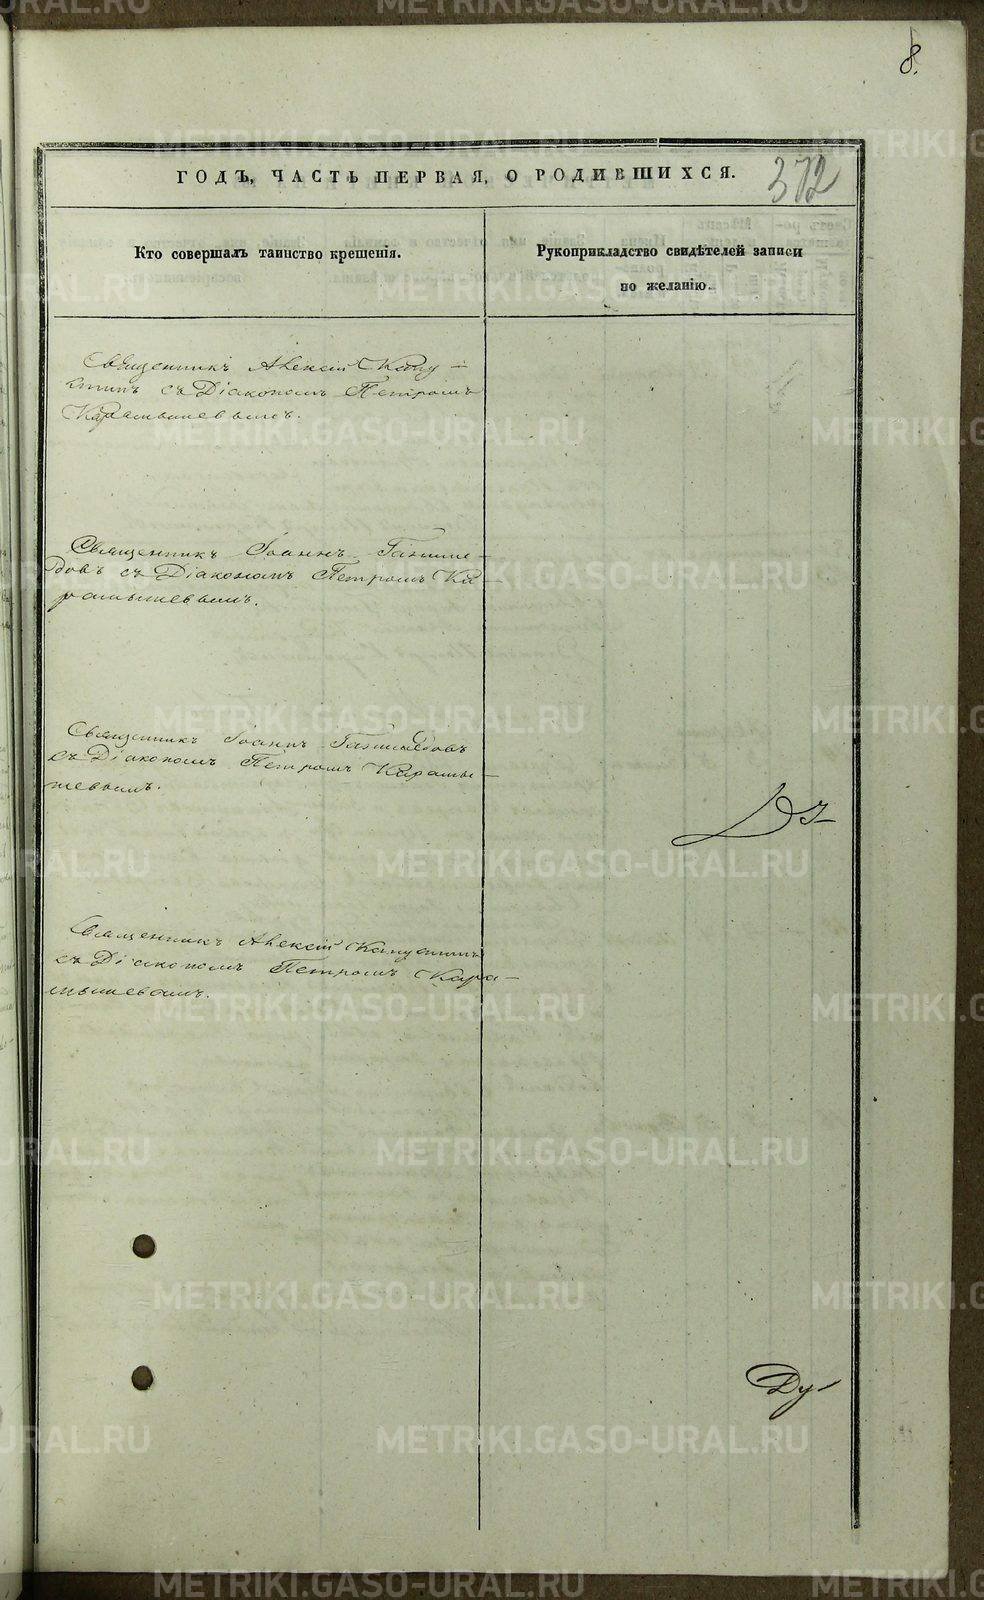 8.
372
ГОДЪ, ЧАСТЬ ПЕРВАЯ, О РОДИВШИХСЯ.
Кто совершалъ таинство крещенія.
Рукоприкладство свидѣтелей записи
по желанію.
Священникъ Алексій Капу-
стинъ съ Діакономъ Петромъ
Карамышевымъ.
Священникъ Іоаннъ
довъ съ Діакономъ Петромъ Ка-
рамышевымъ.
Священникъ Іоаннъ
съ Діакономъ Петромъ Карамы-
шевымъ.
Священникъ Алексій Капустинъ
съ Діакономъ Петромъ Кара-
мышевымъ.
METRIKI.GASO-URAL.RU